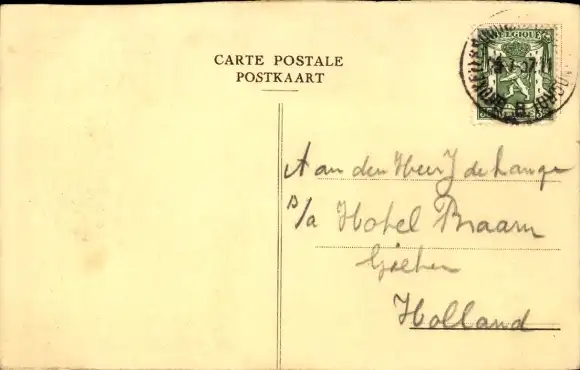 BELGIQUE
CARTE POSTALE
POSTKAART
Aan den Heer J de Lange
p/a Hotel Braam
Gieten
Holland